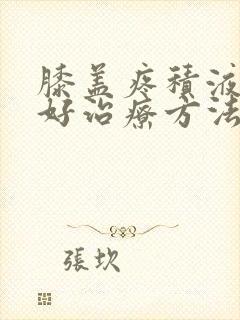 膝盖疼積液
好治療方法
張坎